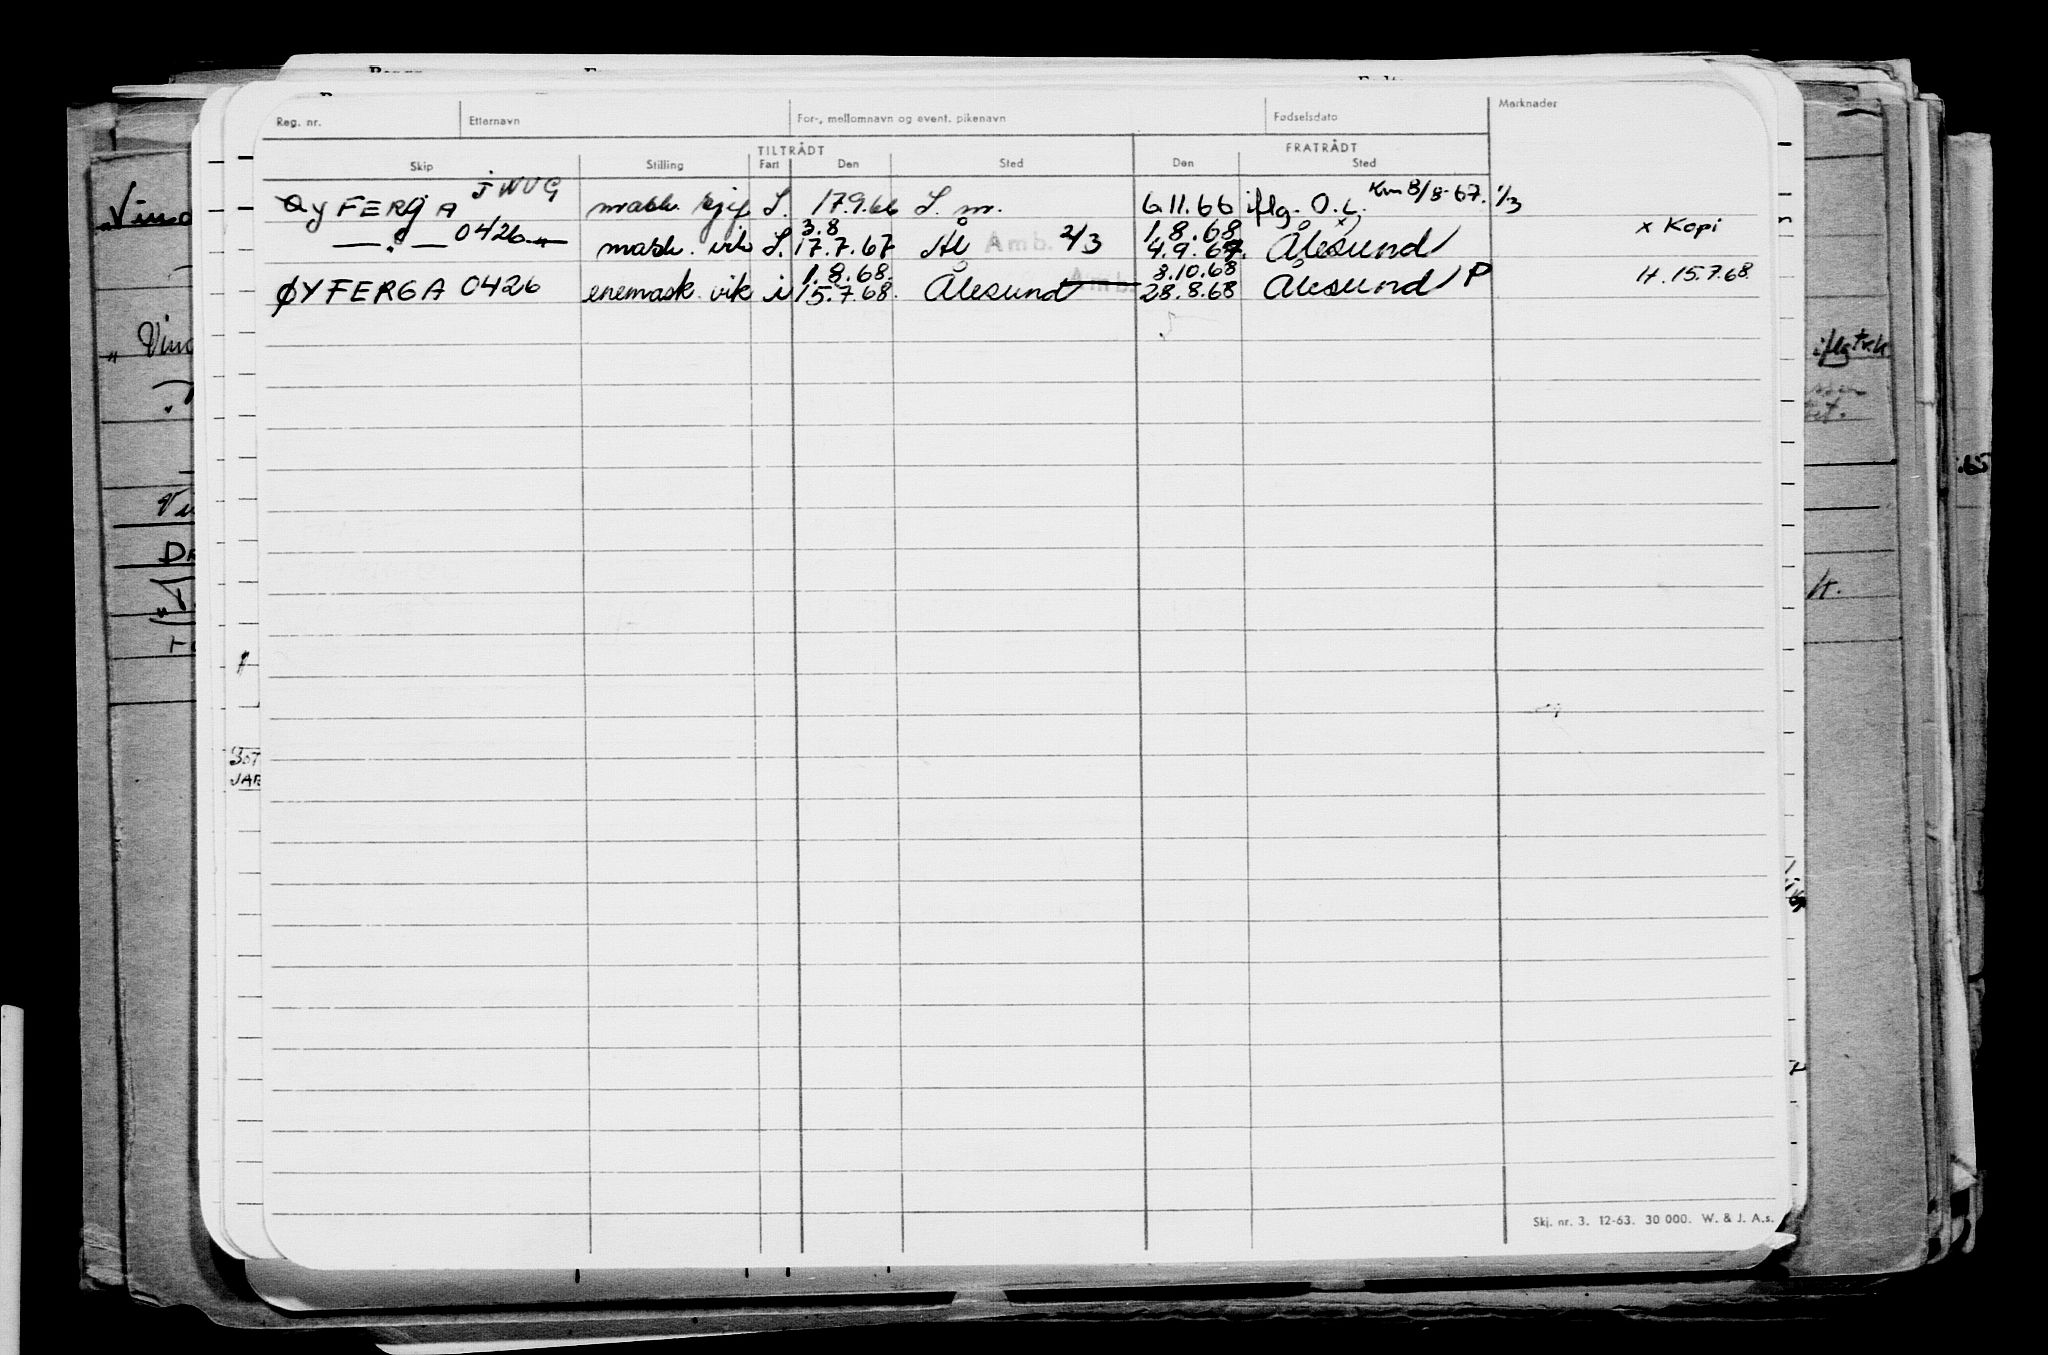 Reg. nr. Etternavn For-, mellomnavn og event. pikenavn Fødselsdato Merknader
TILTRÅDT FRATRÅDT
Skip Stilling Fart Den Sted Den Sted
JWUG
ØYFERGA mask. S. 17.9.66 S. m. 6.11.66 iflg. O.L. 8/8-67. 1/3
3.8 1.8.68 x Kopi
— " — 0426 mask. vik S. 17.7.67 Ål Amb. 2/3 4.9.67. Ålesund
1.8.68. 3.10.68
ØYFERGA 0426 enemask. vik i 15.7.68. Ålesund Amb. 28.8.68 Ålesund P H. 15.7.68
iflg
JAR
Skj. nr. 3. 12-63. 30 000. W. & J. A.s.